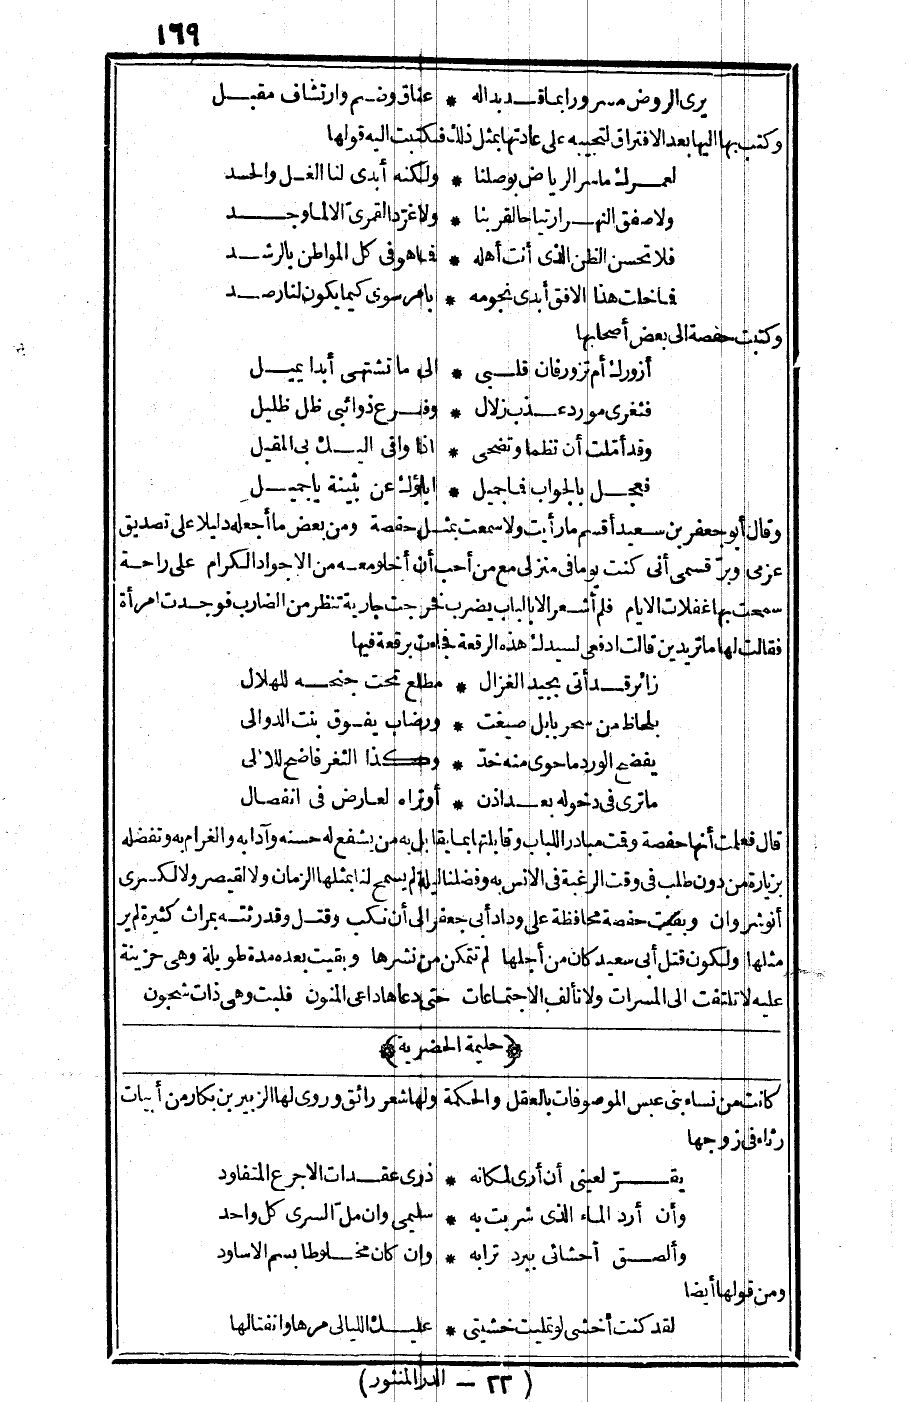 ١٦٩
يرى الروض مسرورا بما قد بداله * عناق وضم وارتشاف مقبل
وكتب بها اليها بعد الافتراق لتجيبه على عادتها بمثل ذلك فكتبت اليه قولها
لعمرك ما سر الرياض بوصلنا * ولكنه أبدى لنا الغل والحسد
ولا صفق النهر ارتياحا لقربنا * ولا غرّد القمرىّ الا لما وجد
فلا تحسن الظن الذى أنت أهله * فما هو فى كل المواطن بالرشد
فما خلت هذا الافق أبدى نجومه * بامر سوى كيما يكون لنا رصد
وكتبت حفصة الى بعض أصحابها
أزورك أم تزور فان قلبى * الى ما تشتهى أبدا يميل
فثغرى مورد عذب زلال * وفرع ذوائبى ظل ظليل
وقد أمّلت أن تظما وتضحى * اذا وافى اليك بى المقيل
فعجل بالجواب فما جميل * اباؤك عن بثينة يا جميل
وقال أبو جعفر بن سعيد أقسم ما رأيت ولا سمعت بمثل حفصة ومن بعض ما أجعله دليلا على تصديق
عزمى وبرّ قسمى أنى كنت يوما فى منزلى مع من أحب أن أخلو معه من الاجواد الكرام على راحة
سمحت بها غفلات الايام فلم أشعر الا بالباب يضرب فخرجت جارية تنظر من الضارب فوجدت امرأة
فقالت لها ما تريدين قالت ادفعى لسيدك هذه الرقعة فجاءت برقعة فيها
زائر قد أتى بجيد الغزال * مطلع تحت جنحه للهلال
بلحاظ من سحر بابل صيغت * ورضاب يفوق بنت الدوالى
يفضح الورد ما حوى منه خدّ * وكذا الثغر فاضح للاٰلى
ما ترى فى دخوله بعد اذن * أو تراه لعارض فى انفصال
قال فعلمت أنها حفصة وقت مبادر اللباب وقابلتها بما يقابل به من يشفع له حسنه وآدابه والغرام به وتفضله
بزيارة من دون طلب فى وقت الرغبة فى الانس به وفضلنا ليلة لم يسمح لنا بمثلها الزمان ولا لقيصر ولا لكسرى
أنوشروان وبقيت حفصة محافظة على وداد أبى جعفر الى أن نكب وقتل وقد رثته بمراث كثيرة لم ير
مثلها ولكون قتل أبى سعيد كان من أجلها لم تتمكن من نشرها وبقيت بعده مدة طويلة وهى حزينة
عليه لا تلتفت الى المسرات ولا تألف الاجتماعات حتى دعاها داعى المنون فلبت وهى ذات شجون
﴿حليمة الحضرية﴾
كانت من نساء بنى عبس الموصوفات بالعقل والحكمة ولها شعر رائق وروى لها الزبير بن بكار من أبيات
رثاء فى زوجها
يقرّ لعينى أن أرى لمكانه * ذرى عقدات الاجرع المتقاود
وأن أرد الماء الذى شربت به * سليمى وان ملّ السرى كل واحد
وألصق أحشائى ببرد ترابه * وإن كان مخلوطا بسم الاساود
ومن قولها أيضا
لقد كنت أخشى لو تمليت خشيتى * عليك الليالى مرها وانفتالها
(٢٢ - الدر المنثور)